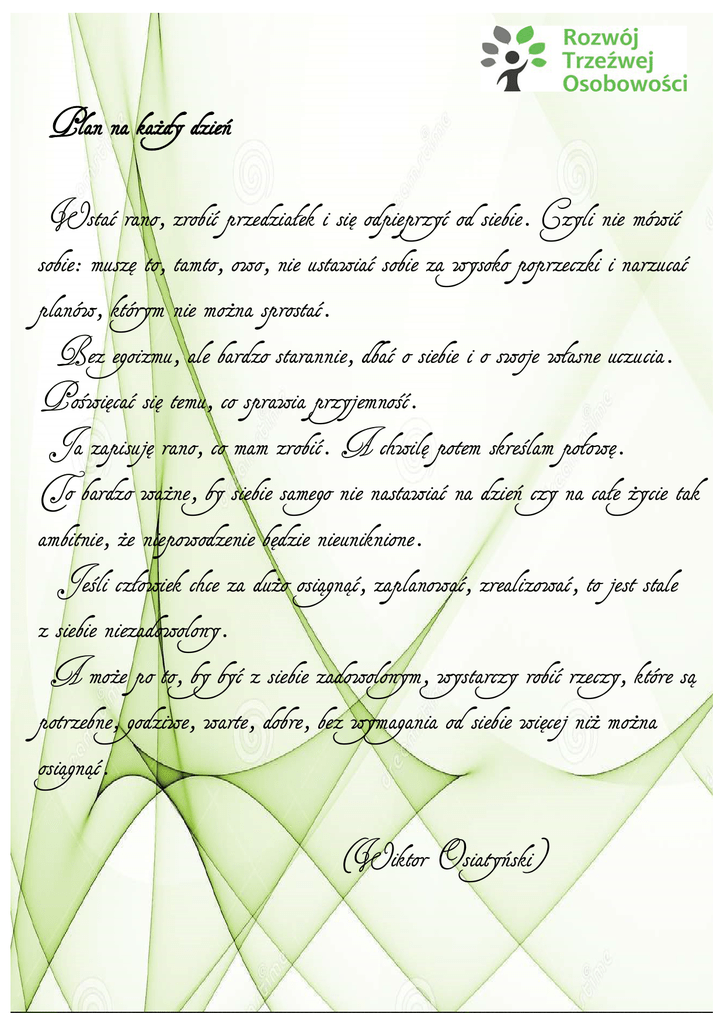 Rozwój
Trzeźwej
Osobowości
Plan na każdy dzień
Wstać rano, zrobić przedziałek i się odpieprzyć od siebie. Czyli nie mówić
sobie: muszę to, tamto, owo, nie ustawiać sobie za wysoko poprzeczki i narzucać
planów, którym nie można sprostać.
Bez egoizmu, ale bardzo starannie, dbać o siebie i o swoje własne uczucia.
Poświęcać się temu, co sprawia przyjemność.
Ja zapisuję rano, co mam zrobić. A chwilę potem skreślam połowę.
To bardzo ważne, by siebie samego nie nastawiać na dzień czy na całe życie tak
ambitnie, że niepowodzenie będzie nieuniknione.
Jeśli człowiek chce za dużo osiągnąć, zaplanować, zrealizować, to jest stale
z siebie niezadowolony.
A może po to, by być z siebie zadowolonym, wystarczy robić rzeczy, które są
potrzebne, godziwe, warte, dobre, bez wymagania od siebie więcej niż można
osiągnąć.
(Wiktor Osiatyński)